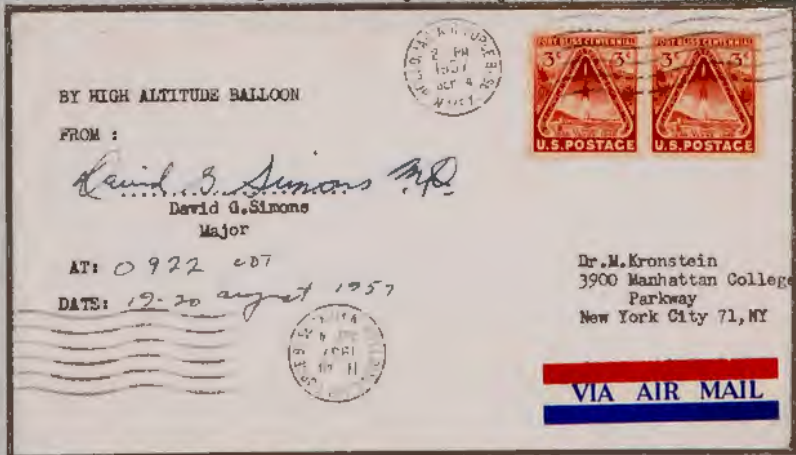 BY HIGH ALTITUDE BALLOON
FROM :
David G Simons M.D.
David G.Simons
Major
AT: 0922 CDT
DATE: 19-20 august 1957
2 PM
1957
OCT 4
FORT BLISS CENTENNIAL
3¢ 3¢
U.S.POSTAGE
FORT BLISS CENTENNIAL
3¢ 3¢
U.S.POSTAGE
Dr.M.Kronstein
3900 Manhattan College
Parkway
New York City 71,NY
VIA AIR MAIL